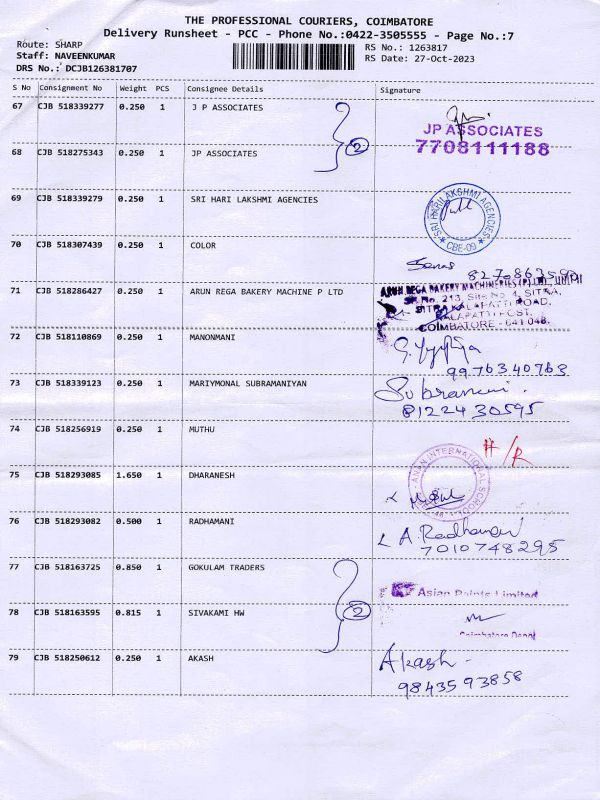 THE PROFESSIONAL COURIERS, COIMBATORE
Delivery Runsheet - PCC - Phone No.:0422-3505555 - Page No.:7
Route: SHARP
Staff: NAVEENKUMAR
DRS No.: DCJB126381707
RS No.: 1263817
RS Date: 27-Oct-2023
S No Consignment No Weight PCS Consignee Details Signature
67 CJB 518339277 0.250 1 J P ASSOCIATES
JP ASSOCIATES
7708111188
2
68 CJB 518275343 0.250 1 JP ASSOCIATES
69 CJB 518339279 0.250 1 SRI HARI LAKSHMI AGENCIES
SRI HARI LAKSHMI AGENCIES
CBE-09
70 CJB 518307439 0.250 1 COLOR
71 CJB 518286427 0.250 1 ARUN REGA BAKERY MACHINE P LTD
ARUN REGA BAKERY MACHINERIES (P) LTD.,
SF.No. 213, Site No 4, SITRA,
SITRA KALAPATTI ROAD,
KALAPATTI POST,
COIMBATORE - 641 048.
72 CJB 518110869 0.250 1 MANONMANI
9976340763
73 CJB 518339123 0.250 1 MARIYMONAL SUBRAMANIYAN
Subramani.
8122430595
74 CJB 518256919 0.250 1 MUTHU
H/R
75 CJB 518293085 1.650 1 DHARANESH
INTERNATIONAL SCHOOL
76 CJB 518293082 0.500 1 RADHAMANI
A. Radhamani
7010748295
77 CJB 518163725 0.850 1 GOKULAM TRADERS
Asian Paints Limited
2
78 CJB 518163595 0.815 1 SIVAKAMI HW
Coimbatore Depot
79 CJB 518250612 0.250 1 AKASH
Akash
9843593858